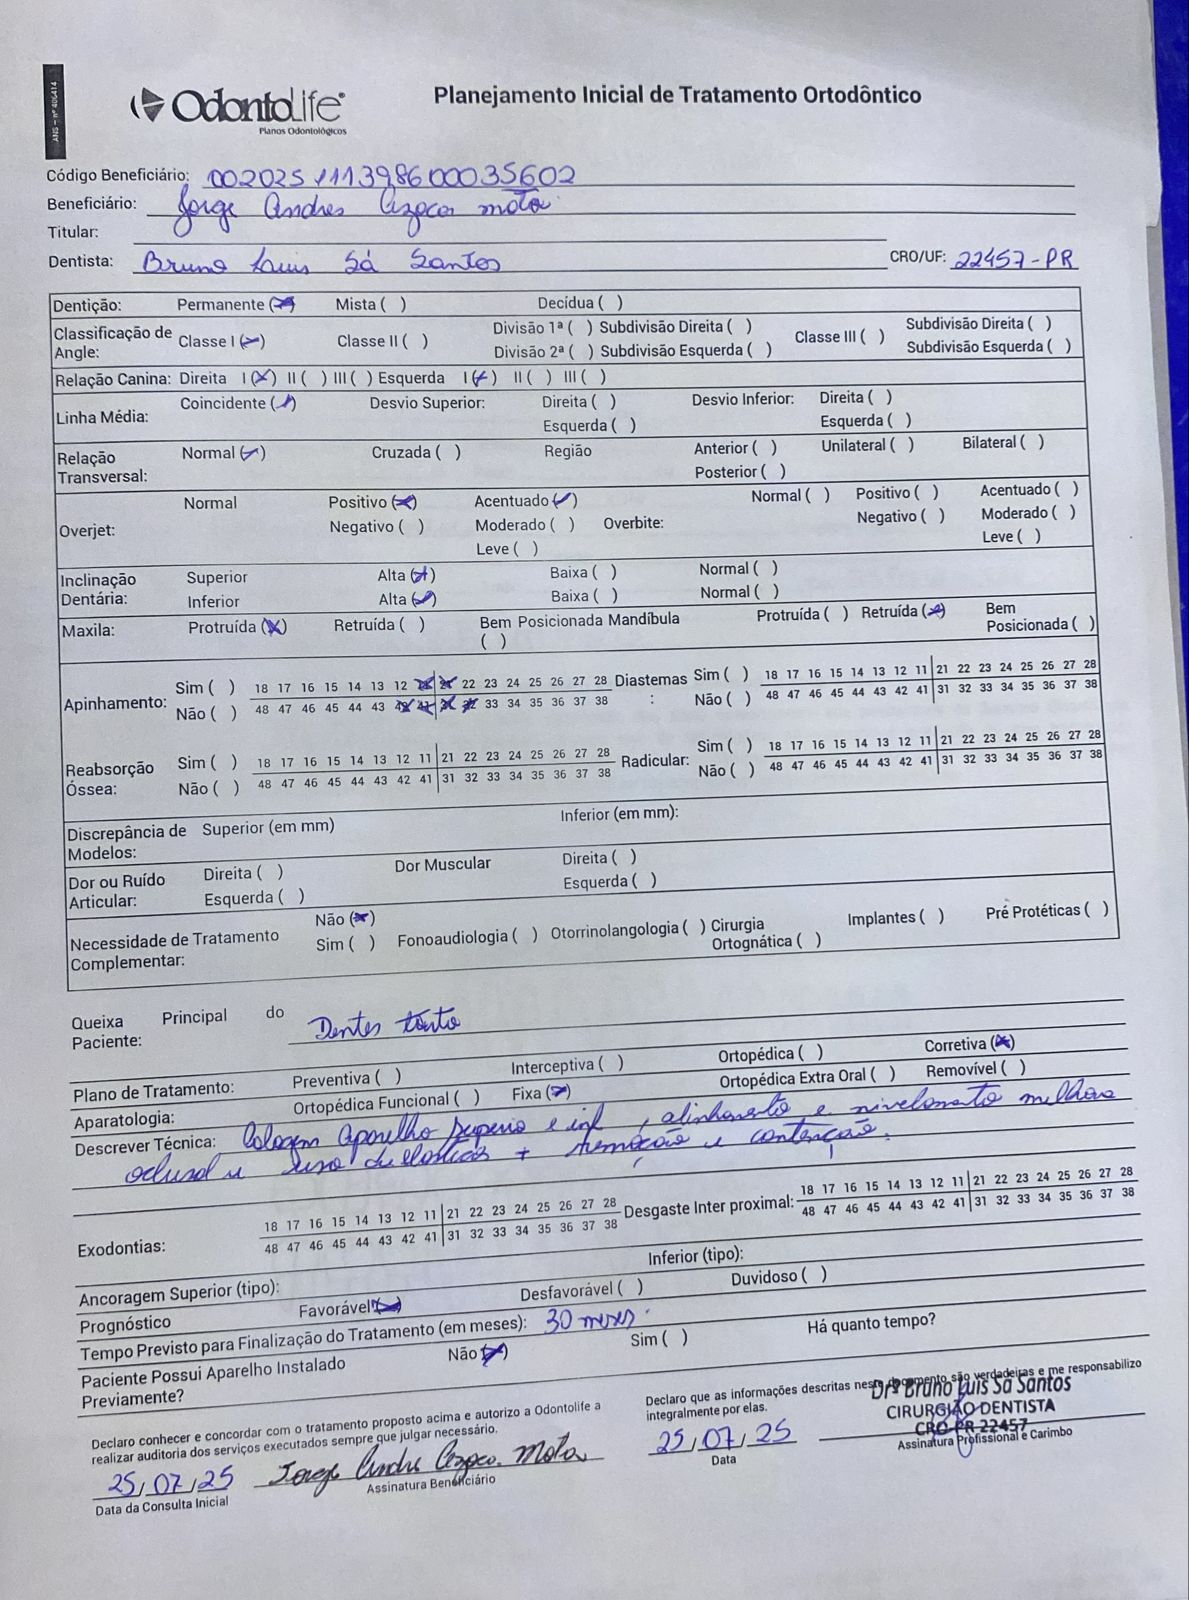 ANS – nº 406414
OdontoLife®
Planos Odontológicos
Planejamento Inicial de Tratamento Ortodôntico
Código Beneficiário: 002025111398600035602
Beneficiário: Jorge Andres mota
Titular:
Dentista: Bruno Luis Sá Santos CRO/UF: 22457-PR
Dentição: Permanente (x) Mista ( ) Decídua ( )
Classificação de Angle: Classe I (x) Classe II ( ) Divisão 1ª ( ) Subdivisão Direita ( ) Divisão 2ª ( ) Subdivisão Esquerda ( ) Classe III ( ) Subdivisão Direita ( ) Subdivisão Esquerda ( )
Relação Canina: Direita I (x) II ( ) III ( ) Esquerda I (x) II ( ) III ( )
Linha Média: Coincidente (x) Desvio Superior: Direita ( ) Esquerda ( ) Desvio Inferior: Direita ( ) Esquerda ( )
Relação Transversal: Normal (x) Cruzada ( ) Região Anterior ( ) Posterior ( ) Unilateral ( ) Bilateral ( )
Overjet: Normal Positivo (x) Negativo ( ) Acentuado (x) Moderado ( ) Leve ( ) Overbite: Normal ( ) Positivo ( ) Negativo ( ) Acentuado ( ) Moderado ( ) Leve ( )
Inclinação Dentária: Superior Alta (x) Baixa ( ) Normal ( )
Inferior Alta (x) Baixa ( ) Normal ( )
Maxila: Protruída (x) Retruída ( ) Bem Posicionada ( ) Mandíbula Protruída ( ) Retruída (x) Bem Posicionada ( )
Apinhamento: Sim ( ) 18 17 16 15 14 13 12 11 21 22 23 24 25 26 27 28 Diastemas: Sim ( ) 18 17 16 15 14 13 12 11 21 22 23 24 25 26 27 28
Não ( ) 48 47 46 45 44 43 42 41 31 32 33 34 35 36 37 38 Não ( ) 48 47 46 45 44 43 42 41 31 32 33 34 35 36 37 38
Reabsorção Óssea: Sim ( ) 18 17 16 15 14 13 12 11 21 22 23 24 25 26 27 28 Radicular: Sim ( ) 18 17 16 15 14 13 12 11 21 22 23 24 25 26 27 28
Não ( ) 48 47 46 45 44 43 42 41 31 32 33 34 35 36 37 38 Não ( ) 48 47 46 45 44 43 42 41 31 32 33 34 35 36 37 38
Discrepância de Modelos: Superior (em mm) Inferior (em mm):
Dor ou Ruído Articular: Direita ( ) Esquerda ( ) Dor Muscular Direita ( ) Esquerda ( )
Necessidade de Tratamento Complementar: Não (x) Sim ( ) Fonoaudiologia ( ) Otorrinolangologia ( ) Cirurgia Ortognática ( ) Implantes ( ) Pré Protéticas ( )
Queixa Principal do Paciente: Dentes torto
Plano de Tratamento: Preventiva ( ) Interceptiva ( ) Ortopédica ( ) Corretiva (x)
Aparatologia: Ortopédica Funcional ( ) Fixa (x) Ortopédica Extra Oral ( ) Removível ( )
Descrever Técnica: Colagem aparelho superio e inf, alinhamento e nivelamento melhora
oclusal e uso de elasticos + remoção e contenção.
Exodontias: 18 17 16 15 14 13 12 11 21 22 23 24 25 26 27 28 Desgaste Inter proximal: 18 17 16 15 14 13 12 11 21 22 23 24 25 26 27 28
48 47 46 45 44 43 42 41 31 32 33 34 35 36 37 38 48 47 46 45 44 43 42 41 31 32 33 34 35 36 37 38
Ancoragem Superior (tipo): Inferior (tipo):
Prognóstico Favorável (x) Desfavorável ( ) Duvidoso ( )
Tempo Previsto para Finalização do Tratamento (em meses): 30 meses.
Paciente Possui Aparelho Instalado Previamente? Não (x) Sim ( ) Há quanto tempo?
Declaro conhecer e concordar com o tratamento proposto acima e autorizo a Odontolife a
realizar auditoria dos serviços executados sempre que julgar necessário.
25/07/25 Jorge Andre Mota
Data da Consulta Inicial Assinatura Beneficiário
Declaro que as informações descritas neste documento são verdadeiras e me responsabilizo
integralmente por elas.
25/07/25
Data
Dr. Bruno Luis Sá Santos
CIRURGIÃO DENTISTA
CRO-PR 22457
Assinatura Profissional e Carimbo